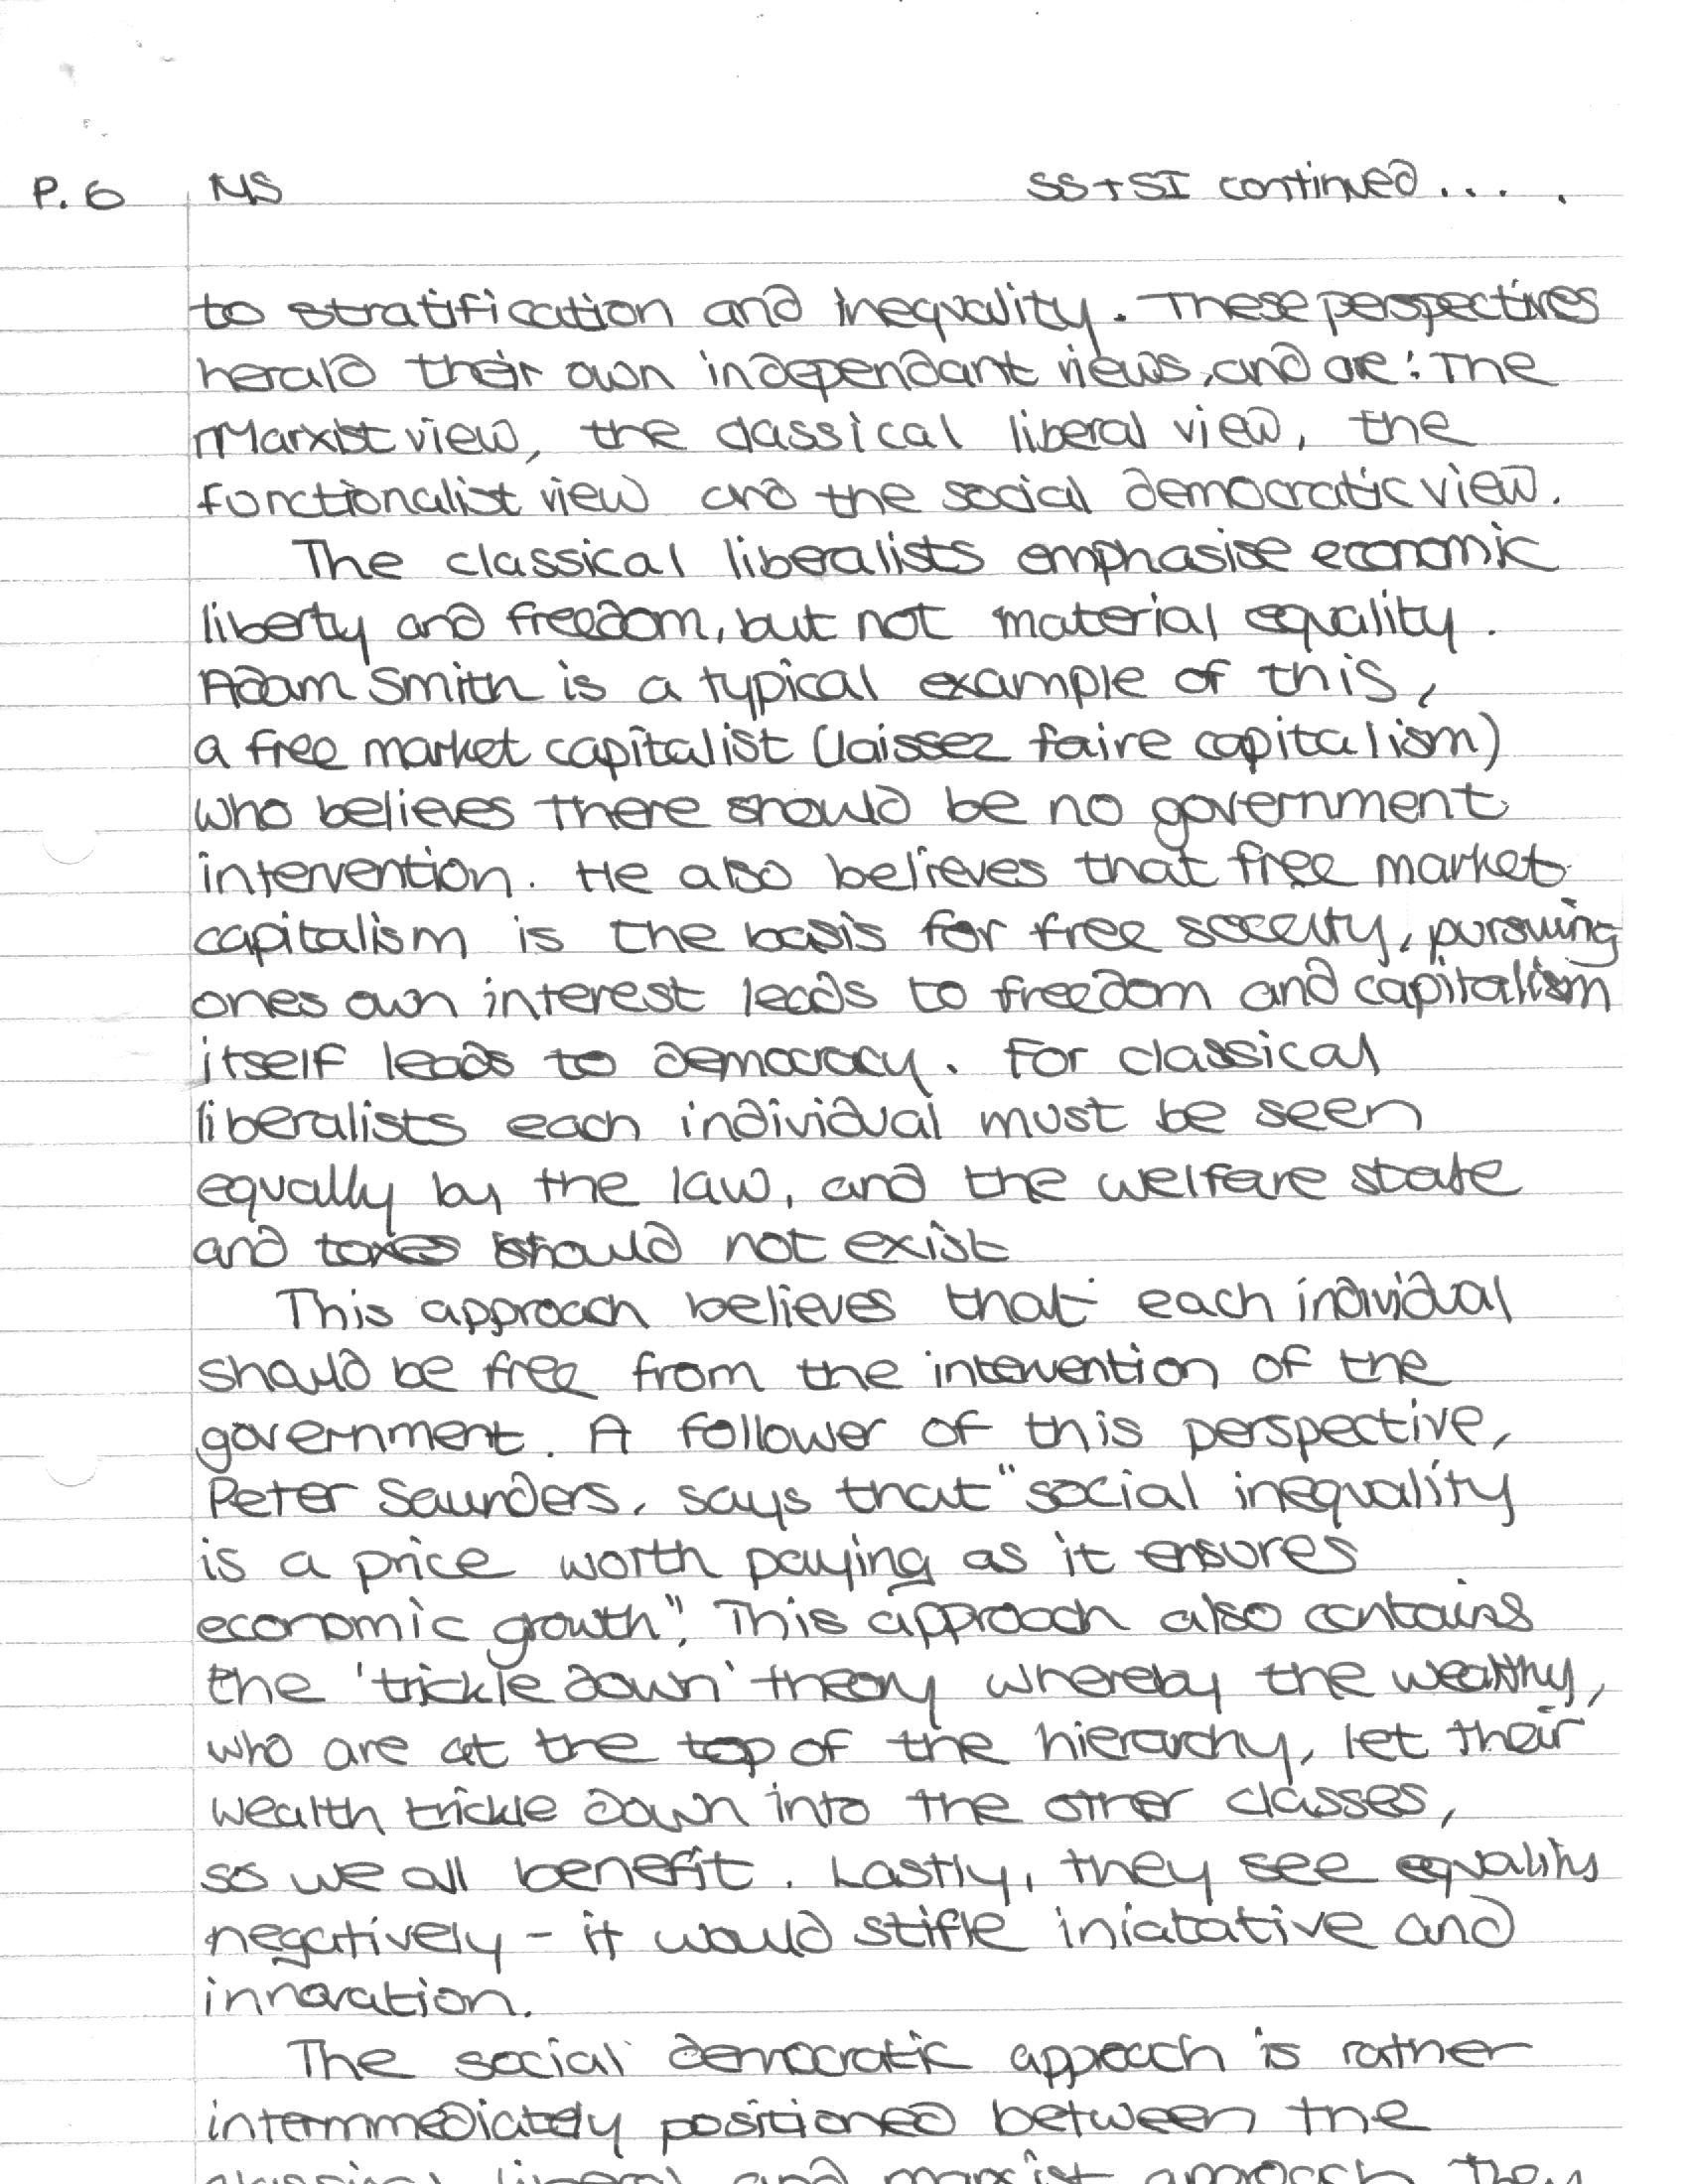 P. 6 MS SS+SI continued.... .
to stratification and inequality. These perspectives
herald their own independant views, and are: The
Marxist view, the classical liberal view, the
functionalist view and the social democratic view.
The classical liberalists emphasise economic
liberty and freedom, but not material equality.
Adam Smith is a typical example of this,
a free market capitalist (laissez faire capitalism)
who believes there should be no government
intervention. He also believes that free market
capitalism is the basis for free soceity, pursuing
ones own interest leads to freedom and capitalism
itself leads to democracy. For classical
liberalists each individual must be seen
equally by the law, and the welfare state
and taxes should not exist
This approach believes that each individual
should be free from the intervention of the
government. A follower of this perspective,
Peter Saunders, says that "social inequality
is a price worth paying as it ensures
economic growth". This approach also contains
the 'trickle down' theory whereby the wealthy,
who are at the top of the hierarchy, let their
wealth trickle down into the other classes,
so we all benefit. Lastly, they see equality
negatively - it would stifle iniatative and
innovation.
The social democratic approach is rather
intermmediately positioned between the
classical liberal and marxist approach. They